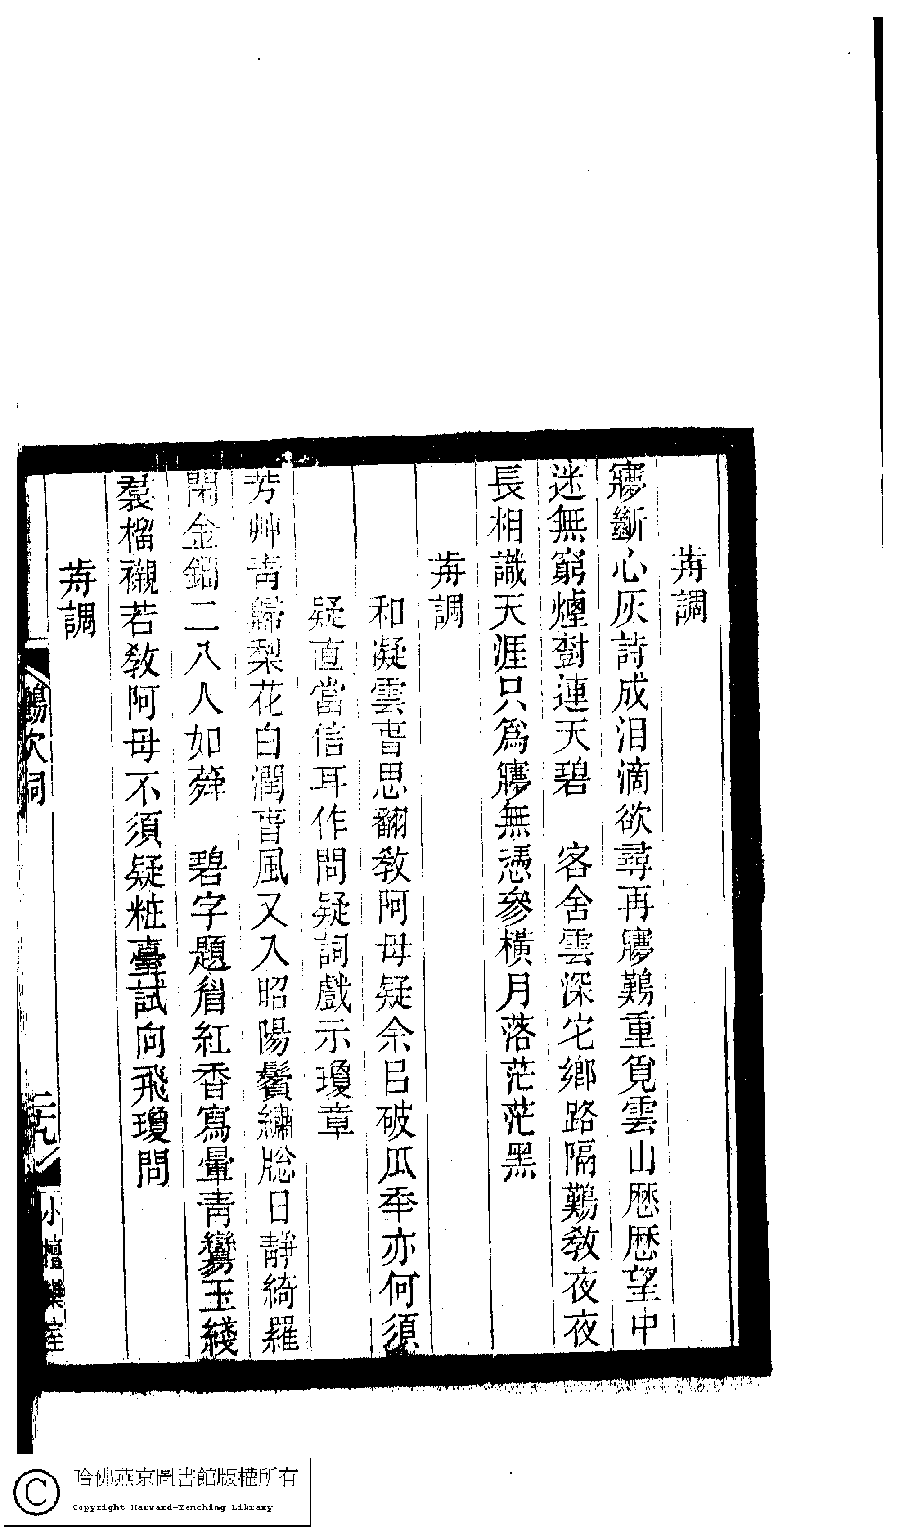 歬調
㝱斷心灰詩成泪滴欲尋再㝱鷬重覓雲山歷歷望中
迷無窮煙對連天碧　客舍雲深宅鄉路隔鷬敎夜夜
長相識天涯只爲㝱無憑參橫月落茫茫黑
歬調
和凝雲旾思翻敎阿母疑余㠯破瓜秊亦何須
疑直當信耳作問疑詞戲示瓊章
芳艸青歸梨花白潤旾風又入昭陽鬢繡牕日靜綺羅
閑金鈿二八人如蕣　碧字題眉紅香寫暈青鸞玉綫
裠榴襯若敎阿母不須疑粧臺試向飛瓊問
歬調
鶒吹詞
二十九
小檀欒室
哈佛燕京圖書館版權所有
Copyright Harvard-Yenching Library